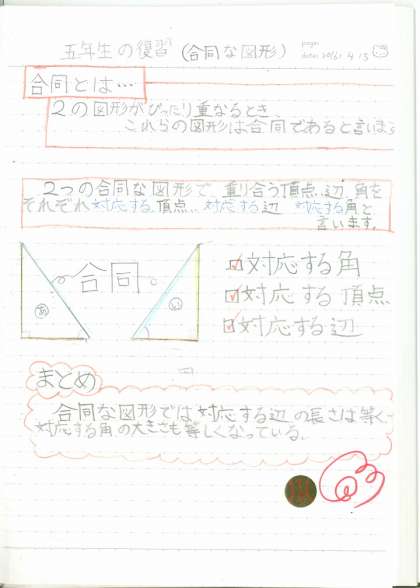 五年生の復習(合同な図形)
合同とは…
2の図形がぴったり重なるとき、
これらの図形は合同であると言います
2つの合同な図形で、重り合う頂点、辺、角を
それぞれ対応する頂点、対応する辺 対応する角と
言います。
合同
あ
い
対応する角
対応する頂点
対応する辺
まとめ
合同な図形では対応する辺の長さは等く、
対応する角の大きさも等しくなっている。